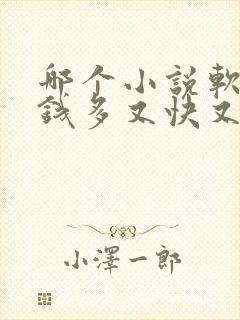 哪个小説軟
錢多又快又
小澤一郎